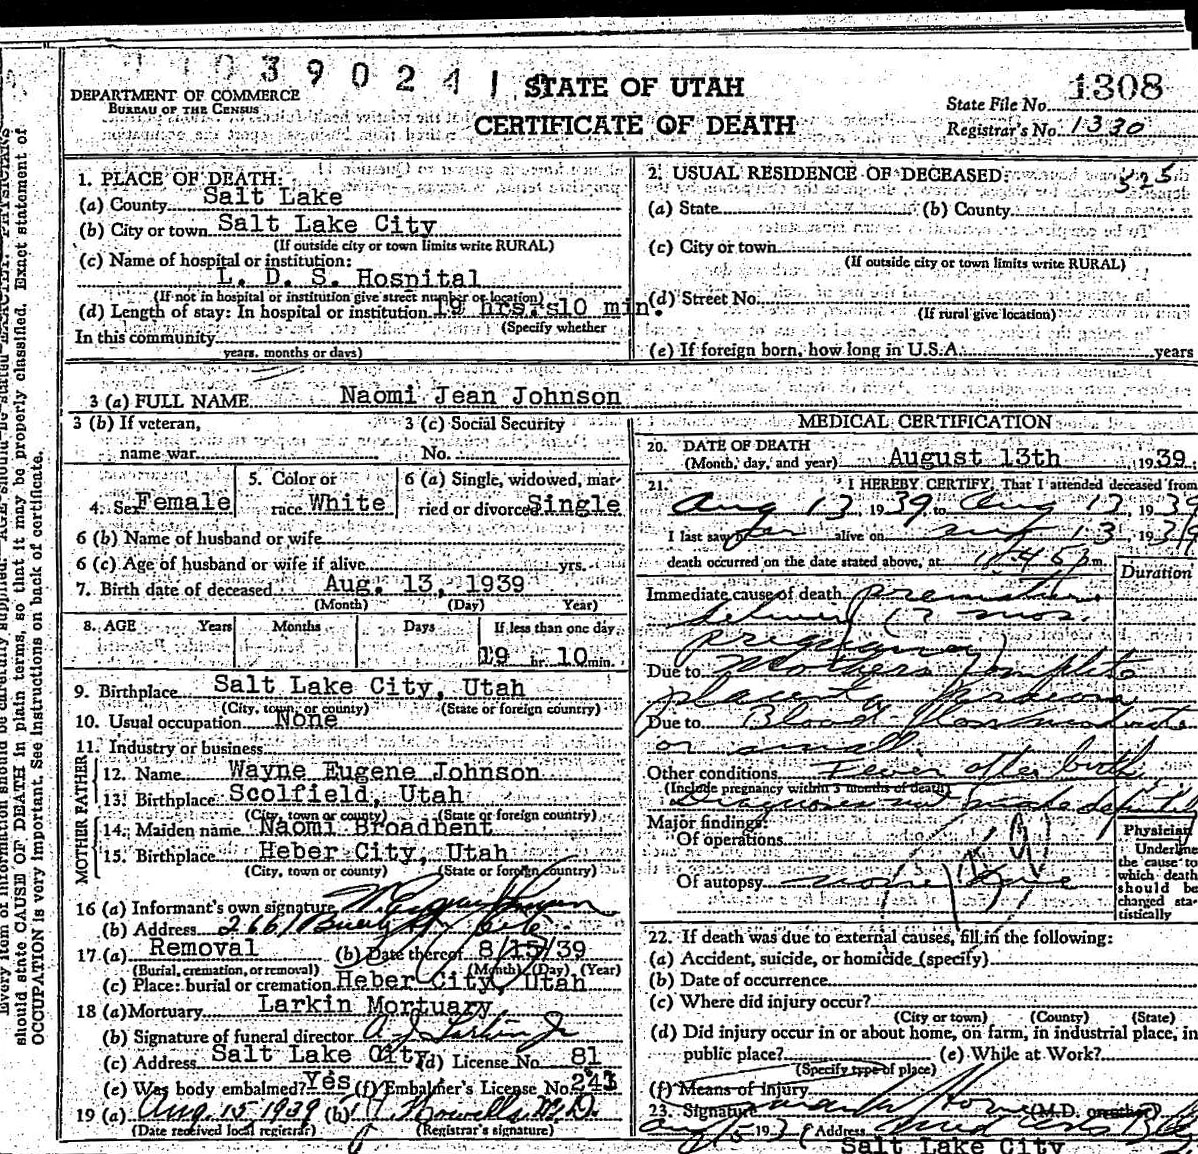 1039024
DEPARTMENT OF COMMERCE
BUREAU OF THE CENSUS
STATE OF UTAH
CERTIFICATE OF DEATH
State File No. 1308
Registrar's No. 1330
1. PLACE OF DEATH:
(a) County Salt Lake
(b) City or town Salt Lake City
(If outside city or town limits write RURAL)
(c) Name of hospital or institution:
L. D. S. Hospital
(If not in hospital or institution give street number or location)
(d) Length of stay: In hospital or institution 19 hrs. 10 min.
(Specify whether
In this community
years, months or days)
2. USUAL RESIDENCE OF DECEASED: 525
(a) State (b) County
(c) City or town
(If outside city or town limits write RURAL)
(d) Street No.
(If rural give location)
(e) If foreign born, how long in U.S.A. years
3 (a) FULL NAME Naomi Jean Johnson
3 (b) If veteran, 3 (c) Social Security
name war No.
4. Sex Female 5. Color or race White 6 (a) Single, widowed, married or divorced Single
6 (b) Name of husband or wife
6 (c) Age of husband or wife if alive yrs.
7. Birth date of deceased Aug. 13, 1939
(Month) (Day) Year)
8. AGE Years Months Days If less than one day
19 hr. 10 min.
9. Birthplace Salt Lake City, Utah
(City, town, or county) (State or foreign country)
10. Usual occupation None
11. Industry or business
FATHER
12. Name Wayne Eugene Johnson
13. Birthplace Scolfield, Utah
(City, town or county) (State or foreign country)
MOTHER
14. Maiden name Naomi Broadbent
15. Birthplace Heber City, Utah
(City, town or county) (State or foreign country)
16 (a) Informant's own signature
(b) Address 2661
17 (a) Removal (b) Date thereof 8/15/39
(Burial, cremation, or removal) (Month) (Day) (Year)
(c) Place: burial or cremation Heber City, Utah
18 (a) Mortuary Larkin Mortuary
(b) Signature of funeral director A J Larkin Jr
(c) Address Salt Lake City (d) License No. 81
(e) Was body embalmed? Yes (f) Embalmer's License No. 243
19 (a) Aug. 15 1939 (b) Howells M.D.
(Date received local registrar) (Registrar's signature)
MEDICAL CERTIFICATION
20. DATE OF DEATH
(Month, day, and year) August 13th 1939.
21. I HEREBY CERTIFY, That I attended deceased from
Aug 13, 1939 to Aug 13, 1939
I last saw her alive on Aug 13, 1939
death occurred on the date stated above, at 1145 p m.
Duration
Immediate cause of death premature
delivery (7 mos.
pregnancy)
Due to Mothers complete
placenta
Due to Blood
or small.
Other conditions Fever after birth
(Include pregnancy within 3 months of death)
Diagnoses not made
Major findings:
Of operations
Of autopsy none
Physician
Underline
the cause to
which death
should be
charged sta-
tistically
22. If death was due to external causes, fill in the following:
(a) Accident, suicide, or homicide (specify)
(b) Date of occurrence
(c) Where did injury occur?
(City or town) (County) (State)
(d) Did injury occur in or about home, on farm, in industrial place, in
public place? (e) While at Work?
(Specify type of place)
(f) Means of injury
23. Signature (M.D. or other)
Aug 15 193 Address
Salt Lake City
should state CAUSE OF DEATH in plain terms, so that it may be properly classified. Exact statement of
OCCUPATION is very important. See instructions on back of certificate.